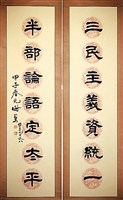 三民主義資統一
半部論語定太平
甲子春